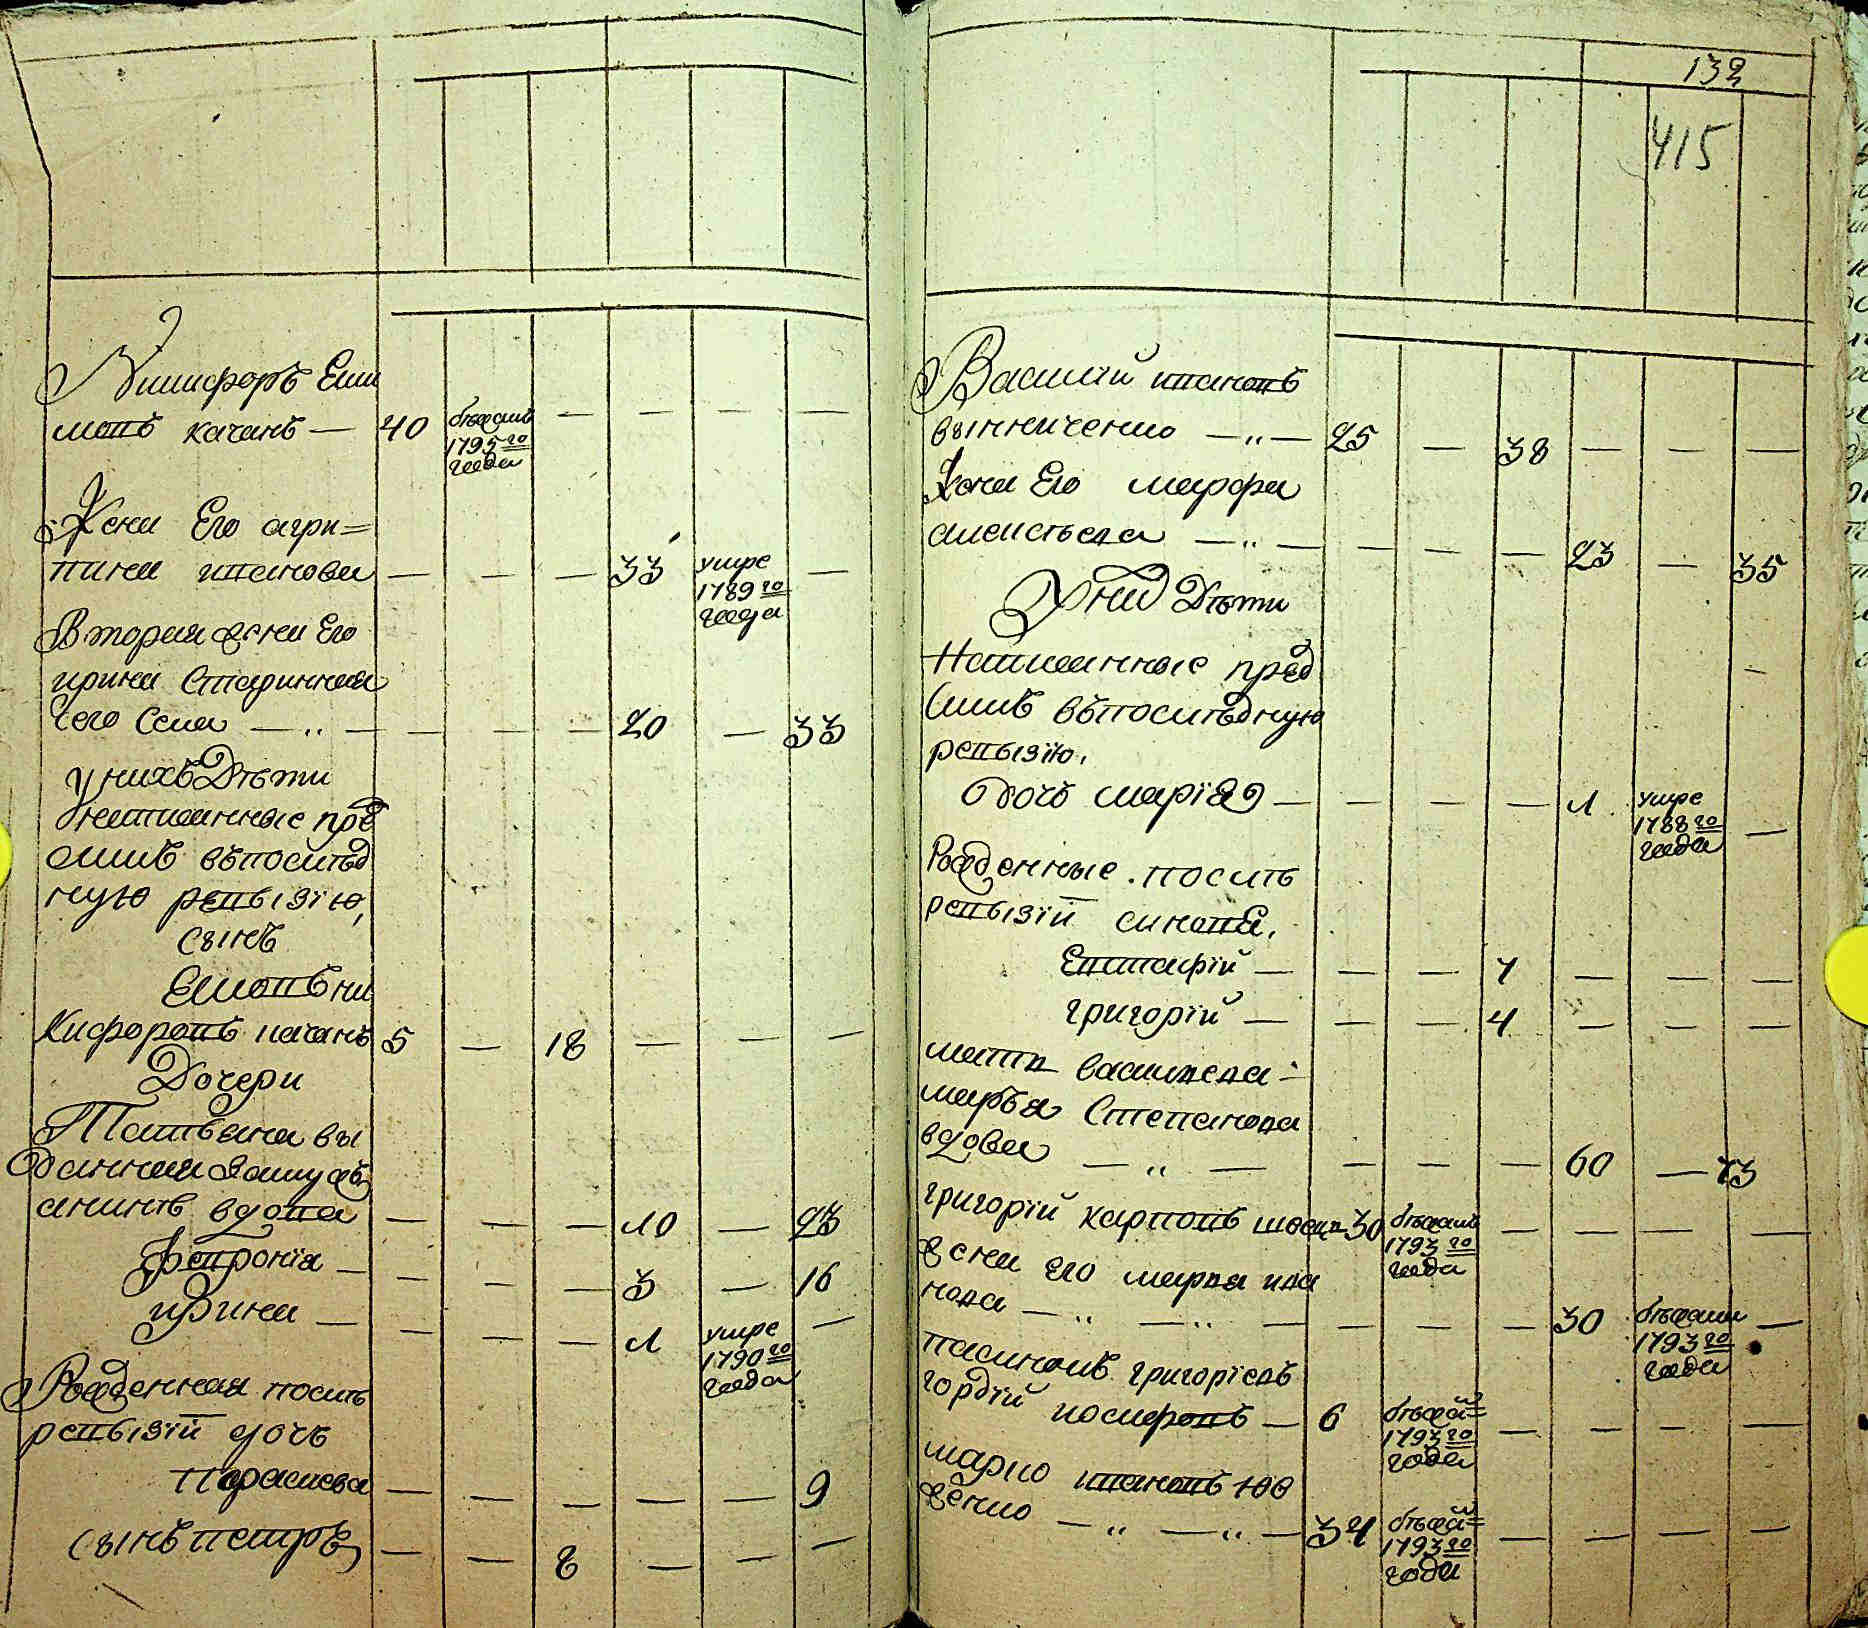 Никифоръ Ели
мовъ качанъ — 40 бѣжалъ
1795 го
года
Жена Его агри=
пина иванова — — — 33 умре —
1789 го
года
Вторая жена Его
ирина Старинная
сего села — „ — — — — 20 — 33
у нихъ Дѣти
написанные пре
домъ въпослѣд
ную ревизїю,
сынъ
ни
кифоровъ качанъ 5 — 18 — — —
Дочери
Татьяна вы
данная замужъ
вдова — — — 10 — 23
Февронїа — — — — 3 — 16
ирина — — — — 1 умре —
1790 го
года
Рожденная послѣ
ревизїи дочь
Параскева — — — — — 9
сынъ петръ — — 8 — — —
132
415
Василїй ивановъ
винниченко — „ — 25 — 38 — — —
Жена Его марфа
алексѣева — „ — — — — 23 — 35
У нихъ Дѣти
Написанные пред
симъ въпослѣдную
ревизїю.
Дочь марїя — — — — 1 умре —
1788 го
года
Рожденные послѣ
ревизїи синовя,
Евстафїй — — — 7 — — —
григорїй — — — 4 — — —
мать василева
марья Степанова
вдова — „ — — — — 60 — 73
григорїй карповъ швецъ 30 бѣжалъ — — — —
1793 го
года
жена его марья ива
нова — „ — „ — — — — 30 бѣжала —
1793 го
года
пасинокъ григорїевъ
гордїй иосифовъ — 6 бѣжал — — — —
1793 го
года
марко ивановъ
— „ — „ — 34 бѣжал — — — —
1793 го
года